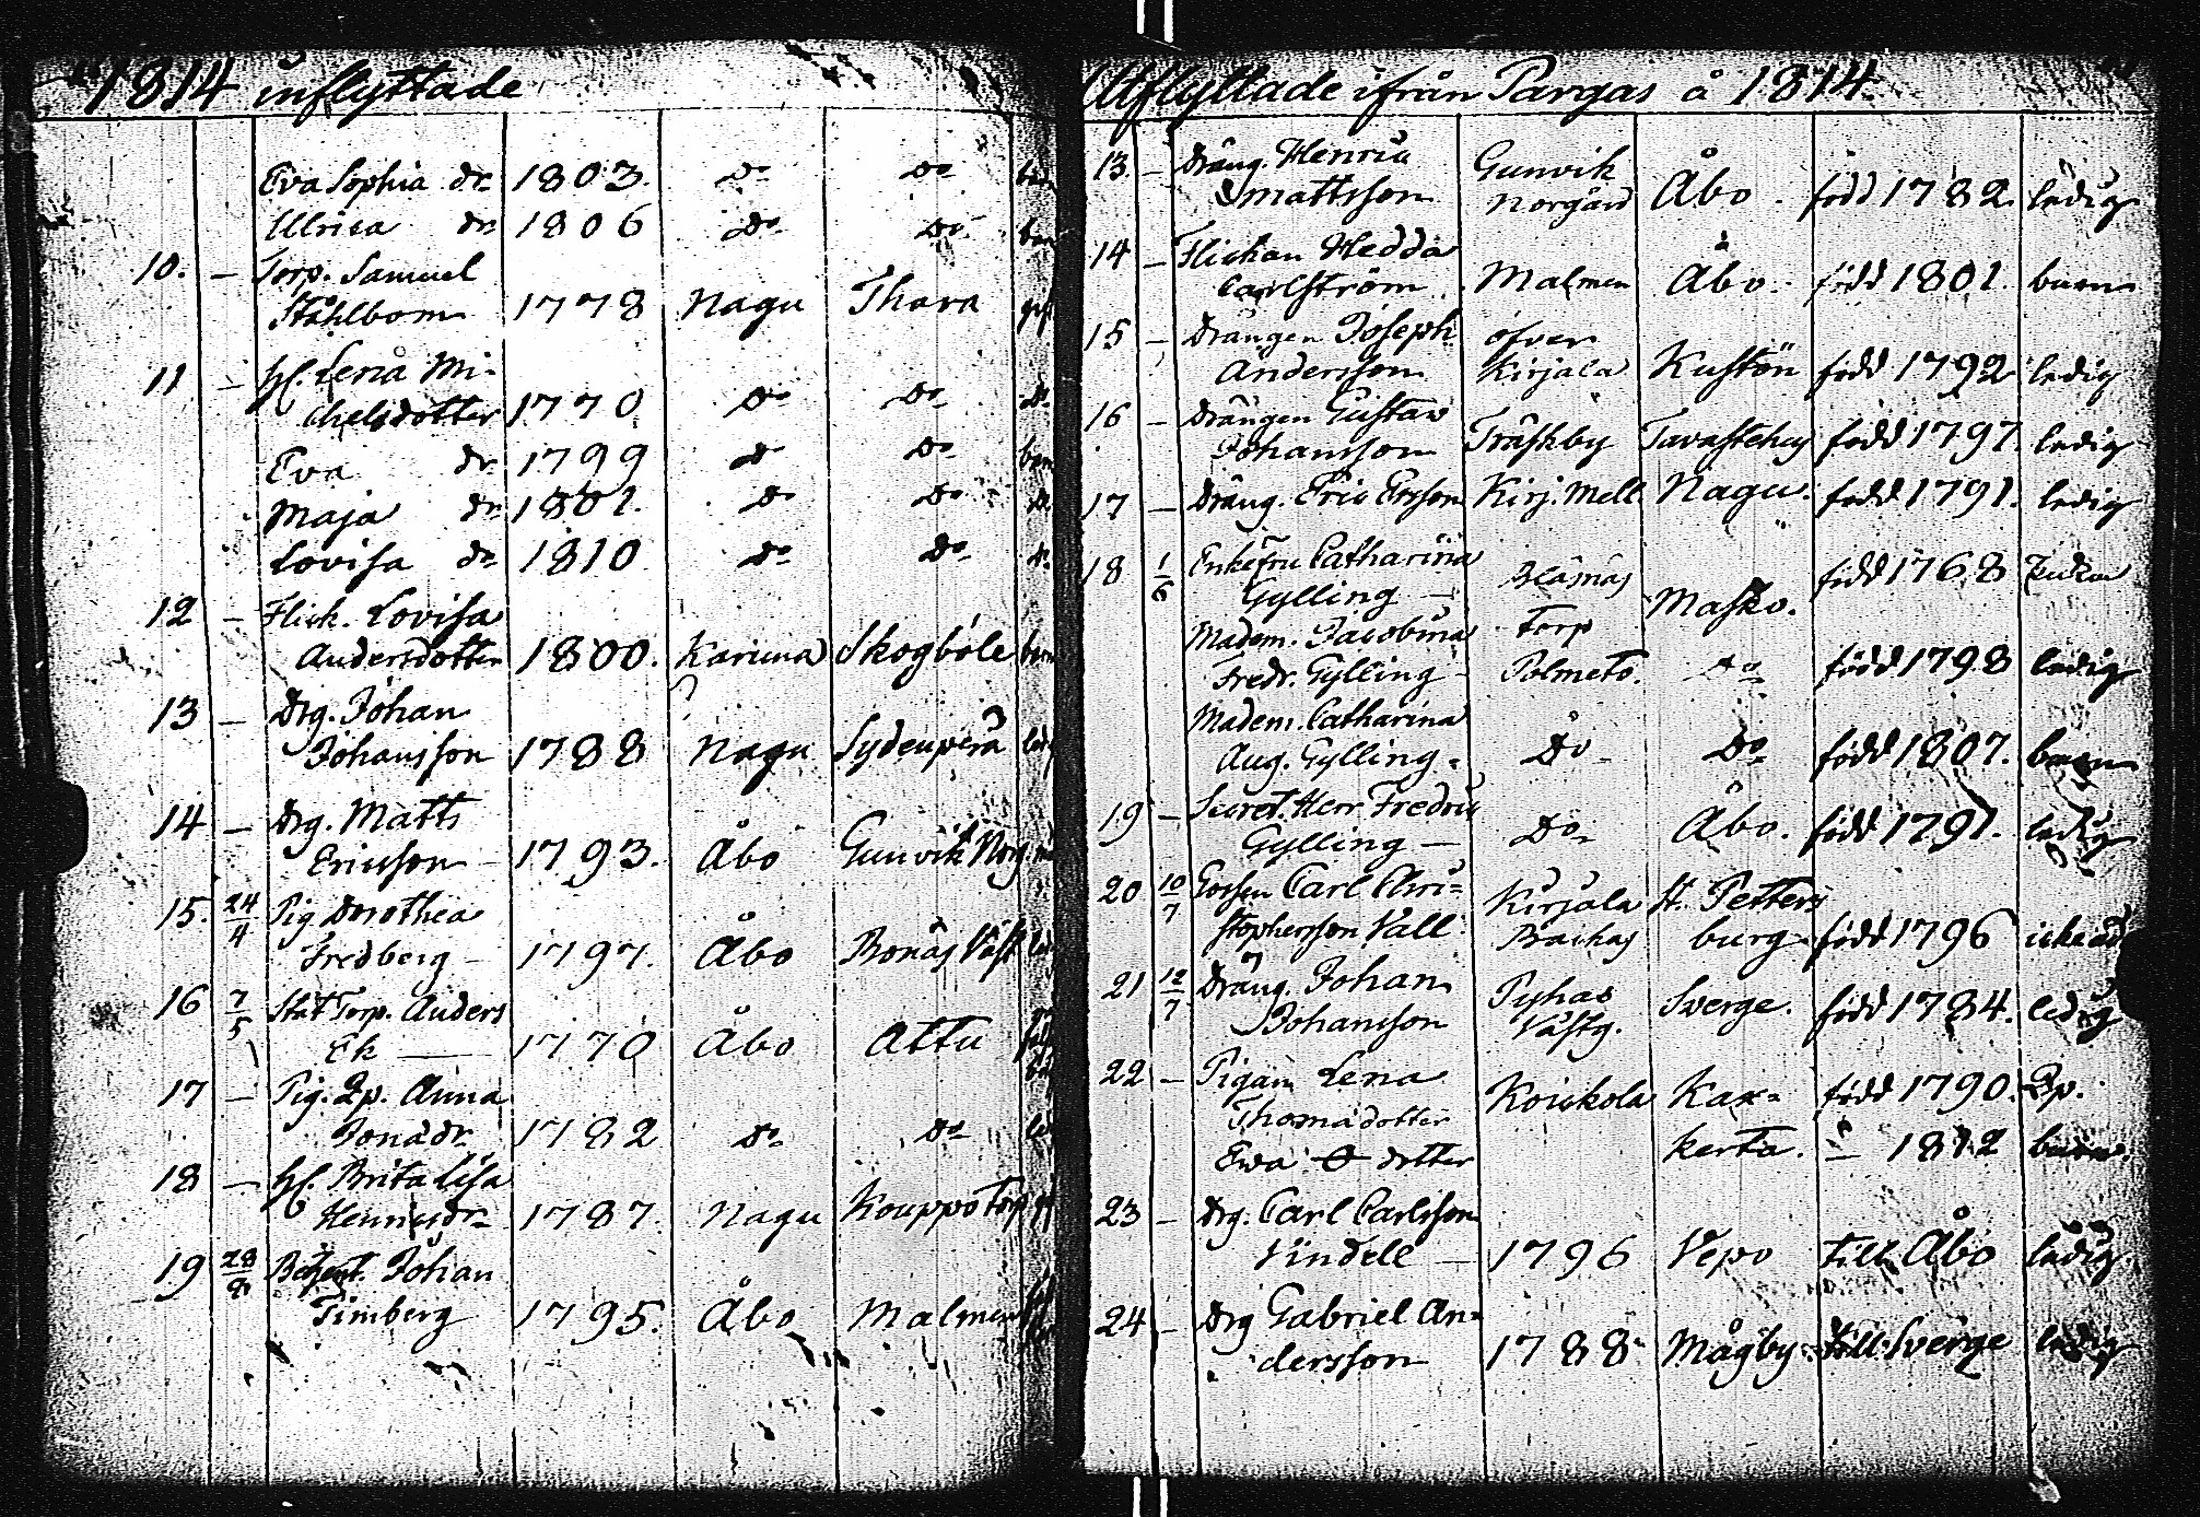 1814 inflyttade
Eva Sophia dr 1803. Do Do barn
Ulrica dr 1806 Do Do barn
10. — Torp. Samuel
Ståhlbom 1778 Nagu Thora gift
11 — h. Lena Mi-
chelsdotter 1770 Do Do D.
Eva dr 1799 Do Do barn
Maja dr 1801. Do Do D.
Lovisa dr 1810 Do Do D.
12 — Flick. Lovisa
Andersdotter 1800. Karuna Skogböle barn
13 — Drg. Johan
Johansson 1788 Nagu Sydenperä ledig
14 — Drg. Matts
Ericsson 1793. Åbo Gunvik Norg.
15. 24/4 Pig Dorothea
Fredberg — 1797. Åbo Bonäs Väst
16 7/5 Stat Torp. Anders
Ek — 1770 Åbo Attu
17 — Pig. Qp. Anna
Jonadr 1782 Do Do
18 — h. Brita Lisa
Henricsdr 1787. Nagu Kouppo Torp
19 28/8 Johan
Timberg 1795. Åbo Malmen
Utflyttade ifrån Pargas å 1814.
13. — Dräng. Henric Gunvik
Mattsson Norgård Åbo. född 1782. ledig
14 — Flickan Hedda
Carlström. Malmen Åbo. född 1801. barn
15 — Drängen Joseph öfver
Andersson Kirjala Kustön född 1792 ledig
16 — Drängen Gustav
Johansson Träskby Tavastehus född 1797. ledig
17 — Dräng. Eric Ersson Kirj. Mell Nagu. född 1791. ledig
18 1/6 Enkefru Catharina född 1768 Enka
Gylling — Bläsnäs Masko.
Madem. Jacobina Torp
Fredr. Gylling — Polmeto. Do född 1798 ledig
Madem. Catharina
Aug. Gylling. Do Do född 1807. barn
19 — Secret. Herr Fredric
Gylling — Do Åbo. född 1791. ledig
20 10/7 Gossen Carl Chri- Kirjala St. Petters
stophersson Vall. Brackas burg. född 1796 icke ad
21 12/7 Dräng. Johan Pyhas Sverge. född 1784. ledig
Johansson Västg.
22 — Pigan Lena Koickola Kar- född 1790. Qp.
Thomadotter
Ewa dotter kerta. — 1812 barn
23 — Drg. Carl Carlsson
Vindell — 1796 Vepo till Åbo ledig.
24 — Drg Gabriel An-
dersson 1788 Mågby till Sverge ledig